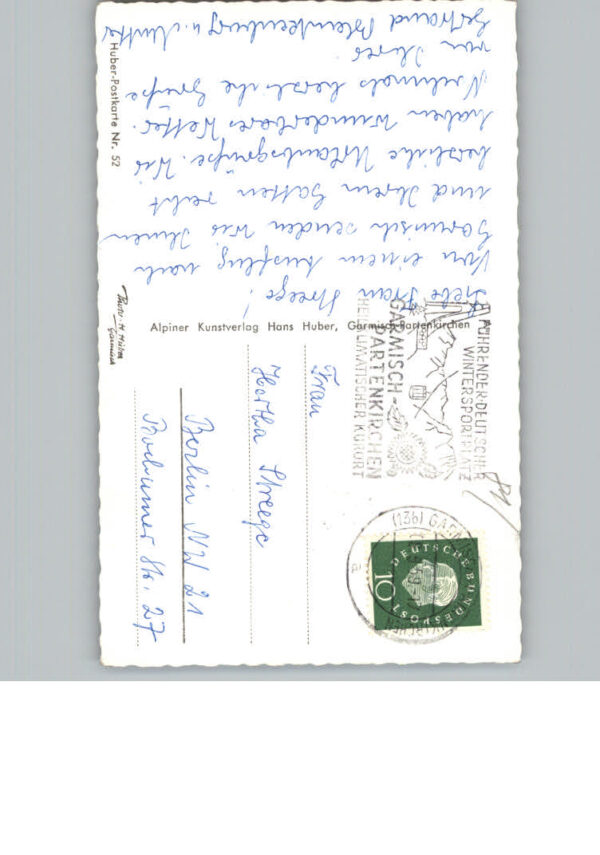 Liebe Frau Streege!
Von einem Ausflug nach
Garmisch senden wir Ihnen
und Ihrem Gatten recht
herzliche Urlaubsgrüße. Wir
haben wunderbares Wetter.
Nochmals herzliche Grüße
von Ihrer
Gertraud Blankenburg u. Mutter
Huber-Postkarte Nr. 52
Photo-H. Huber
Garmisch
Alpiner Kunstverlag Hans Huber, Garmisch-Partenkirchen
FÜHRENDER DEUTSCHER
WINTERSPORTPLATZ
GARMISCH-
PARTENKIRCHEN
HEILKLIMATISCHER KURORT
(13b) GARMISCH-PARTENKIRCHEN
DEUTSCHE BUNDESPOST
10
Frau
Hertha Streege
Berlin NW 21
Bochumer Str. 27